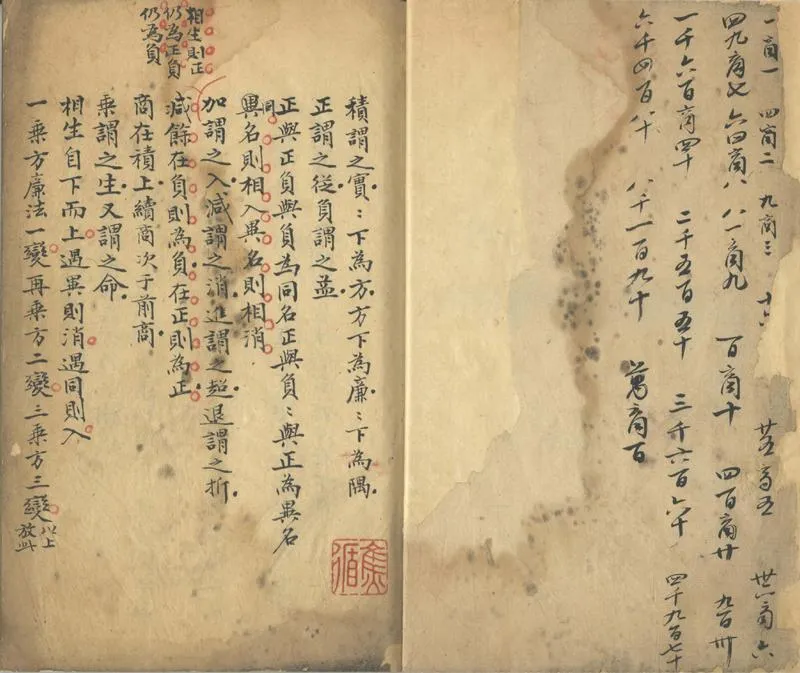 一商一 四商二 九商三 十六 廿五商五 卅六商六
四九商七 六四商八 八一商九 百商十 四百商廿 九百卅
一千六百商四十 二千五百五十 三千六百六十 四千九百七十
六千四百八十 八千一百九十 萬商百
積謂之實:下為方方下為廉:下為隅
正謂之從負謂之益
正與正負與負為同名正與負:與正為異名
同名則相入異名則相消
加謂之入減謂之消進謂之超退謂之折
減餘在負則為負在正則為正
相生則正
仍為正負
仍為負
商在積上續商次于前商
乘謂之生又謂之命
相生自下而上遇異則消遇同則入
一乘方廉法一變再乘方二變三乘方三變以上
放此
焦循